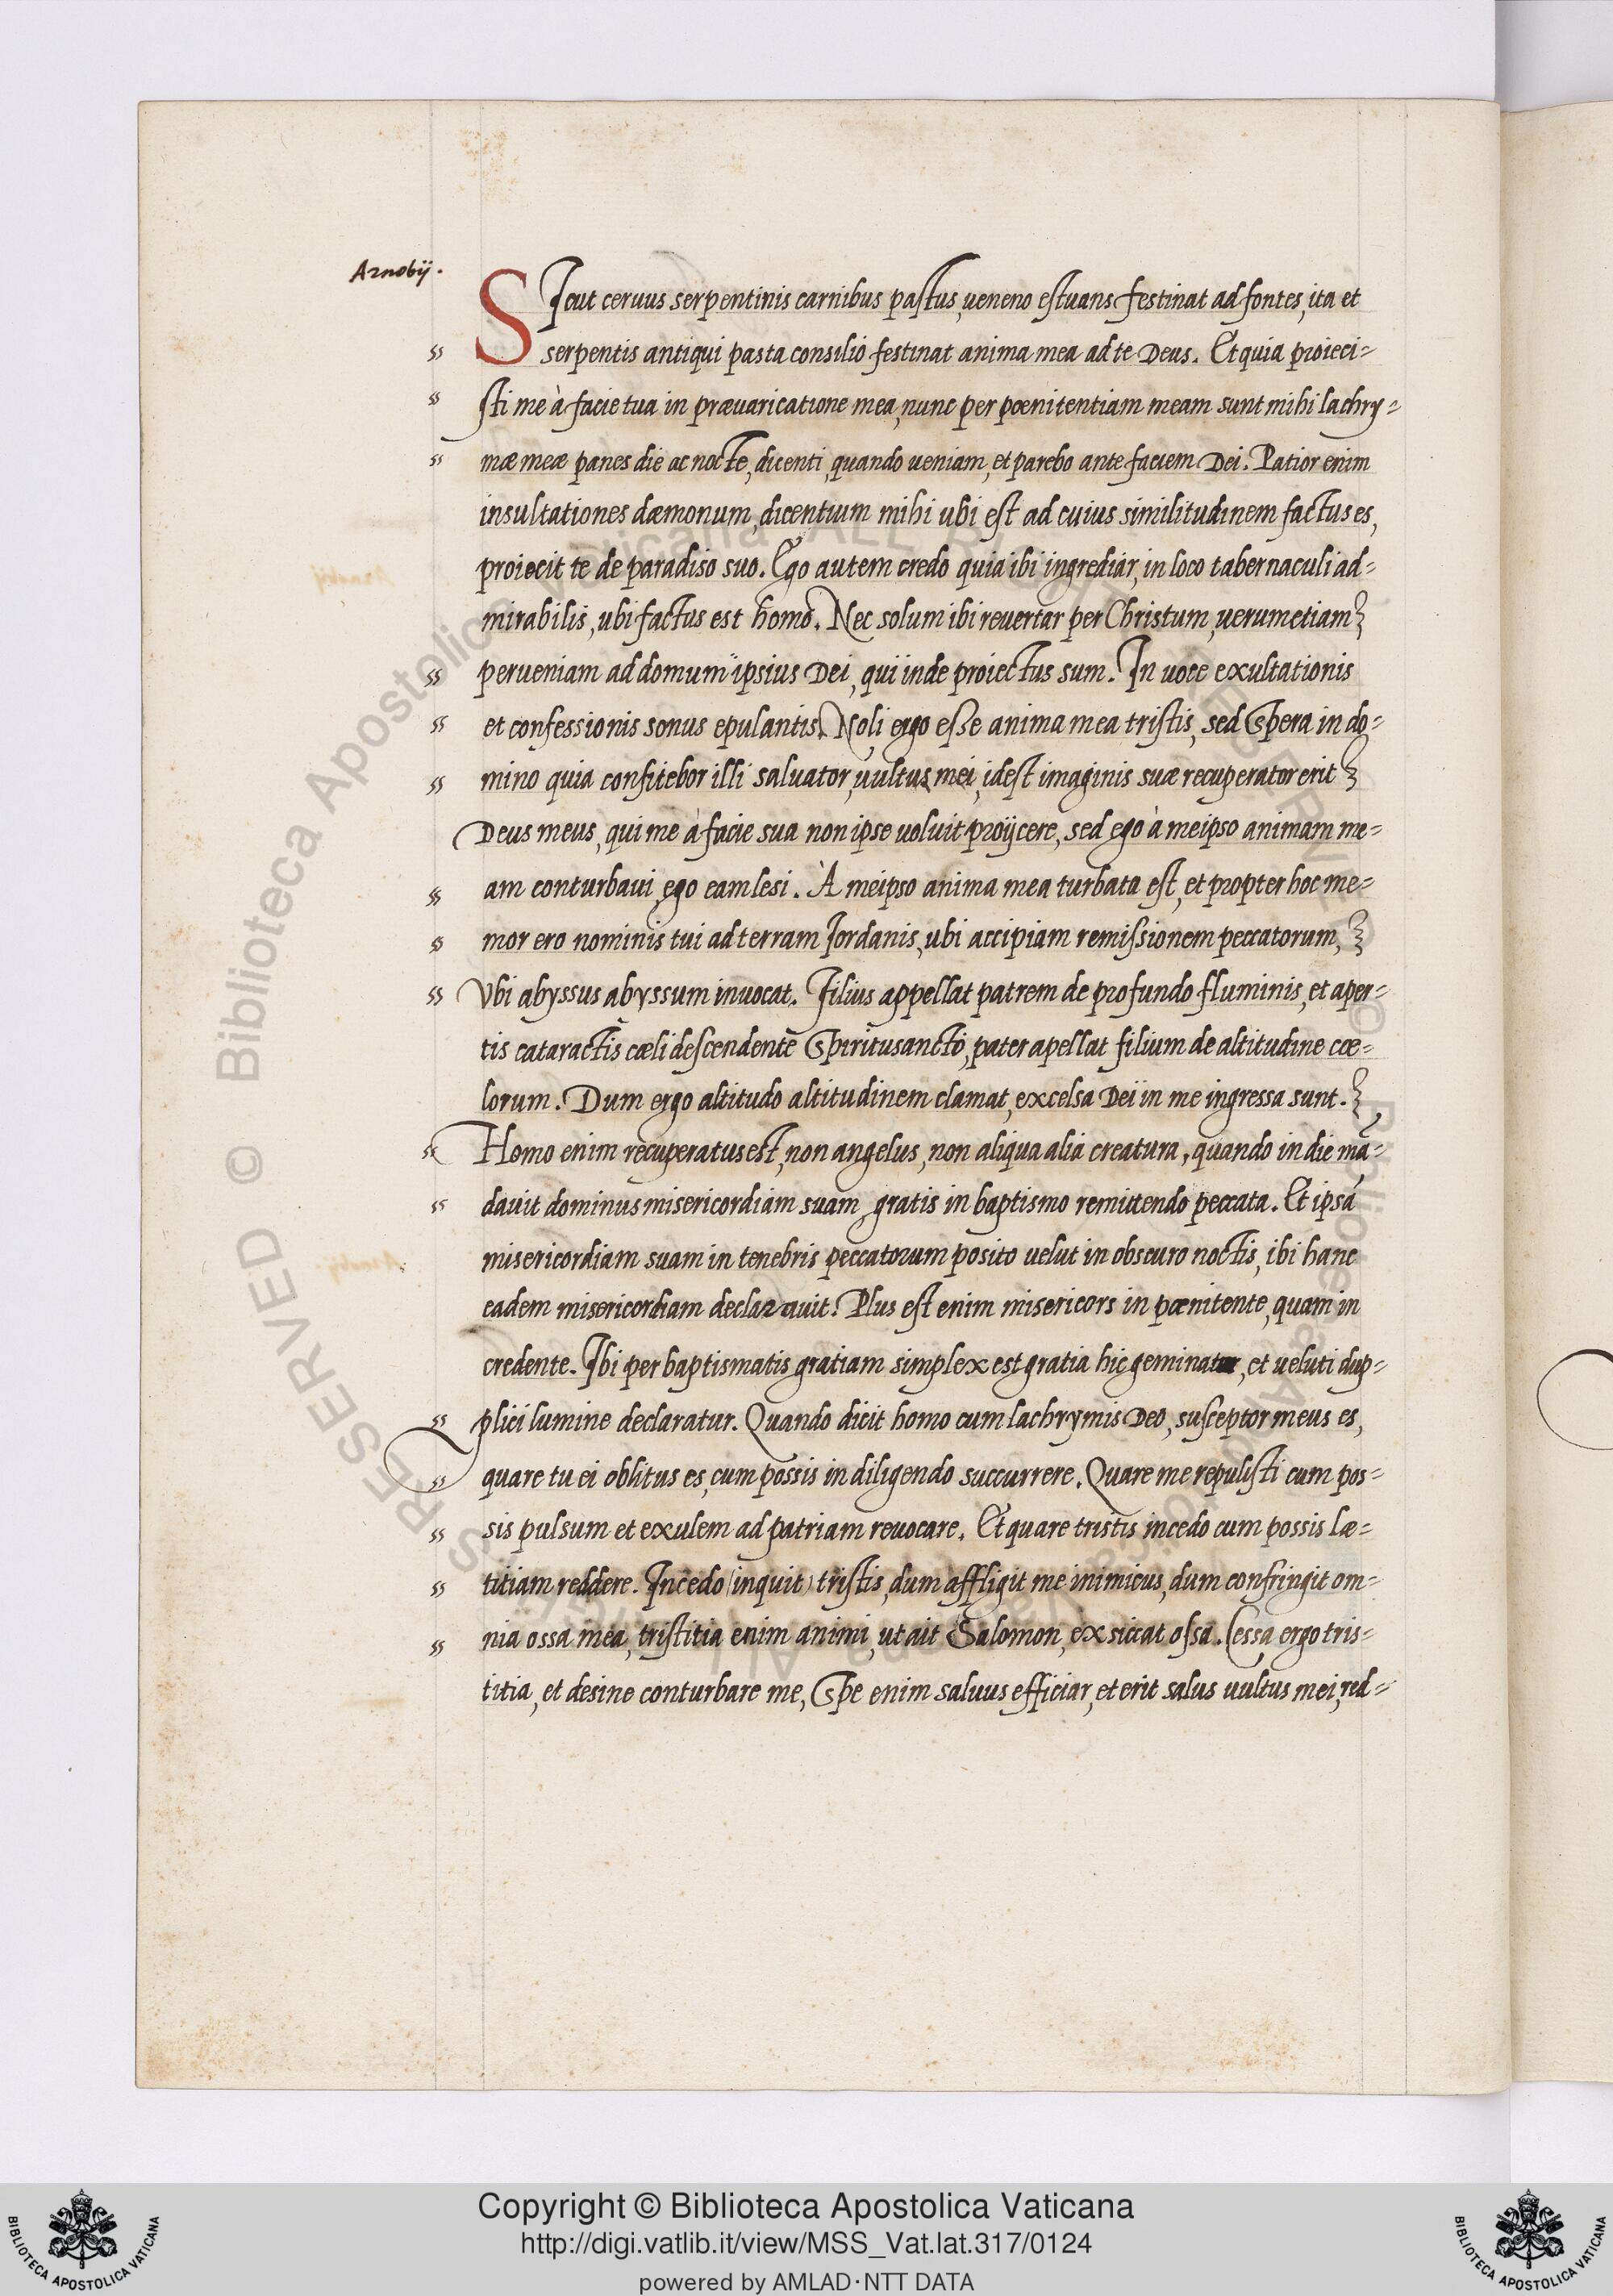 Arnobij.
SIcut ceruus serpentinis carnibus pastus, ueneno estuans festinat ad fontes, ita et
serpentis antiqui pasta consilio festinat anima mea ad te Deus. Et quia proieci=
sti me à facie tua in præuaricatione mea, nunc per pœnitentiam meam sunt mihi lachry=
mæ meæ panes die ac nocte, dicenti, quando ueniam, et parebo ante faciem Dei. Patior enim
insultationes dæmonum, dicentium mihi ubi est ad cuius similitudinem factus es,
proiecit te de paradiso suo. Ego autem credo quia ibi ingrediar, in loco tabernaculi ad=
mirabilis, ubi factus est homo. Nec solum ibi reuertar per Christum, uerum etiam
perueniam ad domum ipsius Dei, qui inde proiectus sum. In uoce exultationis
et confessionis sonus epulantis. Noli ergo esse anima mea tristis, sed spera in do=
mino quia confitebor illi saluator, uultus mei, idest imaginis suæ recuperator erit
Deus meus, qui me à facie sua non ipse uoluit proijcere, sed ego à meipso animam me=
am conturbaui, ego eam lesi. À meipso anima mea turbata est, et propter hoc me=
mor ero nominis tui ad terram Iordanis, ubi accipiam remissionem peccatorum,
Vbi abyssus abyssum inuocat. Filius appellat patrem de profundo fluminis, et aper=
tis cataractis cæli descendente Spiritusancto, pater apellat filium de altitudine cœ=
lorum. Dum ergo altitudo altitudinem clamat, excelsa Dei in me ingressa sunt.
Homo enim recuperatus est, non angelus, non aliqua alia creatura, quando in die mã=
dauit dominus misericordiam suam, gratis in baptismo remittendo peccata. Et ipsã
misericordiam suam in tenebris peccatorum posito uelut in obscuro noctis, ibi hanc
eadem misericordiam declarauit. Plus est enim misericors in pœnitente, quam in
credente. Ibi per baptismatis gratiam simplex est gratia hic geminatur, et ueluti dup=
plici lumine declaratur. Quando dicit homo cum lachrymis Deo, susceptor meus es,
quare tu ei oblitus es, cum possis in diligendo succurrere. Quare me repulisti cum pos=
sis pulsum et exulem ad patriam reuocare. Et quare tristis incedo cum possis læ=
titiam reddere. Incedo (inquit) tristis, dum affligit me inimicus, dum confringit om=
nia ossa mea, tristitia enim animi, ut ait Salomon, exsiccat ossa. Cessa ergo tris=
titia, et desine conturbare me, Spe enim saluus efficiar, et erit salus uultus mei, red=
© Biblioteca Apostolica Vaticana ALL RIGHTS RESERVED
Copyright © Biblioteca Apostolica Vaticana
http://digi.vatlib.it/view/MSS_Vat.lat.317/0124
powered by AMLAD·NTT DATA
BIBLIOTECA APOSTOLICA VATICANA
BIBLIOTECA APOSTOLICA VATICANA